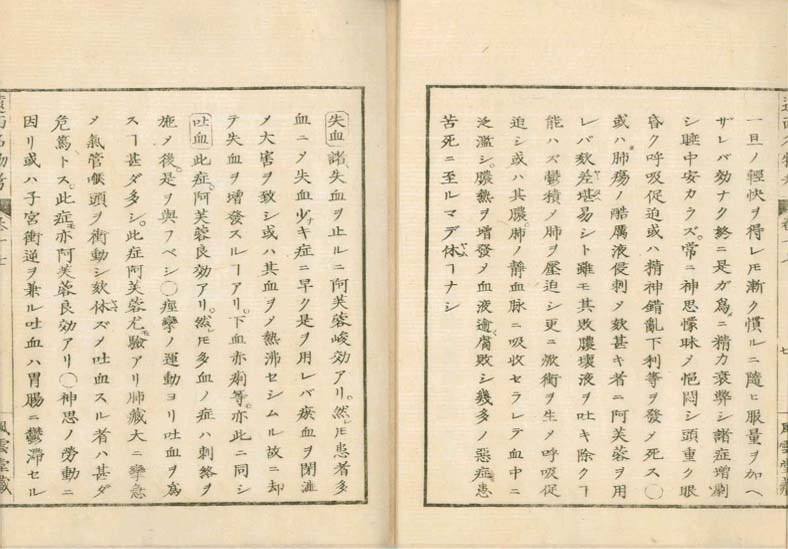 一旦ノ輕快ヲ得レ𪜈漸ク慣ルニ隨ヒ服量ヲ加ヘ
ザレバ効ナク終ニ是ガ爲ニ精力衰弊シ諸症增劇
シ睡中安カラズ。常ニ神思懞昧メ悒悶シ頭重ク眼
昏ク呼吸促迫或ハ精神錯亂下利等ヲ發メ死ス○
或ハ肺瘍ノ酷厲液侵刺メ欬甚キ者ニ阿芙蓉ヲ用
レバ欬差堪易シト雖𪜈其敗膿壞液ヲ吐キ除クヿ
能ハズ鬱積メ肺ヲ壓迫シ更ニ焮衝ヲ生メ呼吸促
迫シ或ハ其膿肺ノ靜血脉ニ吸收セラレテ血中ニ
泛濫シ。膿熱ヲ增發メ血液逾腐敗シ幾多ノ惡症患
苦死ニ至ルマデ休ヿナシ
七
風雲堂藏
失血 諸失血ヲ止ルニ阿芙蓉峻効アリ。然レ𪜈患者多
血ニメ失血少ナキ症ニ早ク是ヲ用レバ瘀血ヲ閉濇
メ大害ヲ致シ或ハ其血ヲメ熱沸セシムル故ニ却
テ失血ヲ增發スルヿアリ。下血赤痢等亦此ニ同シ
吐血 此症阿芙蓉良効アリ。然レ𪜈多血ノ症ハ刺絡ヲ
施メ後。是ヲ與フベシ○痙攣ノ運動ヨリ吐血ヲ爲
スヿ甚ダ多シ。此症阿芙蓉尤驗アリ肺藏大ニ攣急
メ氣管喉頭ヲ衝動シ欬休ズメ吐血スル者ハ甚ダ
危篤トス。此症亦阿芙蓉良効アリ○神思ノ勞動ニ
因リ或ハ子宮衝逆ヲ兼ル吐血ハ胃腸ニ鬱滯セル
遠西名物考
卷十七
風雲堂藏